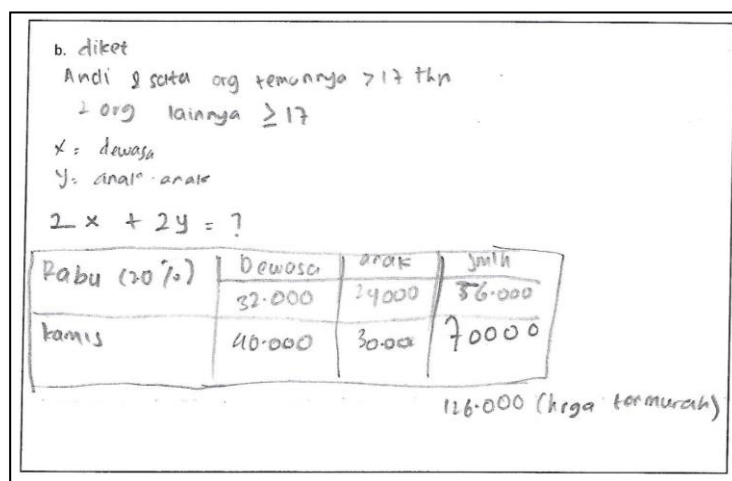 b. diket
Andi & satu org temannya >17 thn
2 org lainnya ≥ 17
x = dewasa
y = anak-anak
2x + 2y = ?
Rabu (20%) Dewasa anak Jmlh
32.000 24000 56.000
kamis 40.000 30.000 70000
126.000 (hrga termurah)